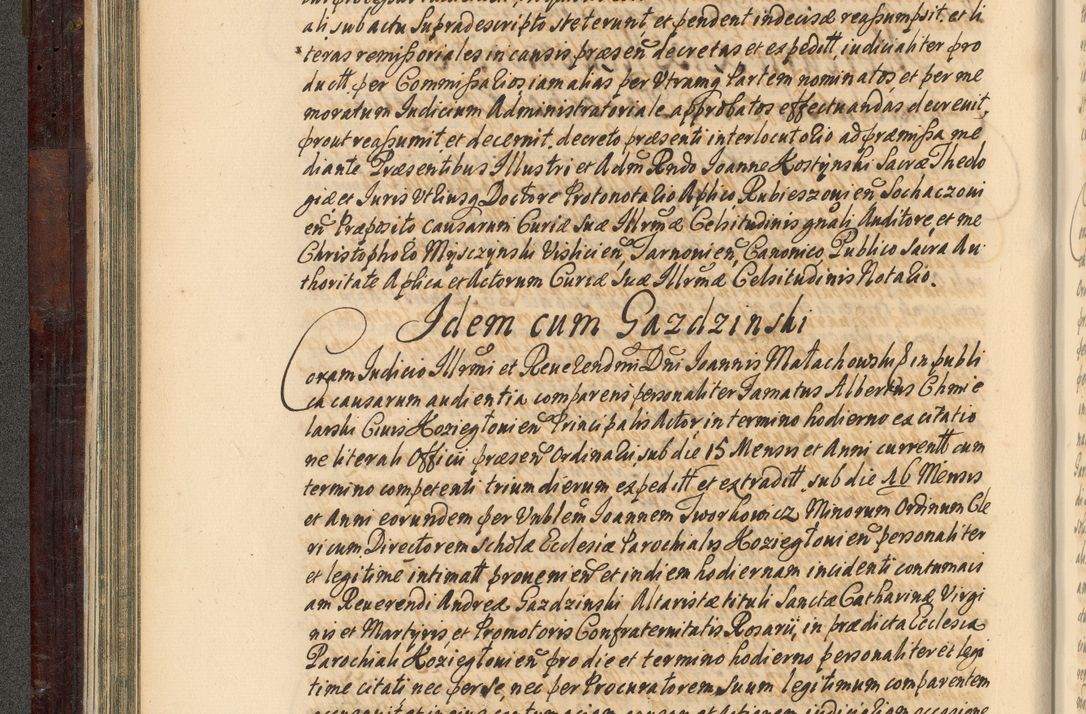 ali sub actu supradescripto steterunt, et pendent indecisæ reaßumpsit, et li
teras remißoriales in causis præsen̄ decretas et expeditt, iudicialiter pro
ductt, per Commißarios iam alias per Utramq Partem nominatos, et per me
moratum Iudicium Administratoriale approbatos effectuandas decreuit,
prout reaßumit et decernit, decreto præsenti interlocutorio ad præmißa me
diante Præsentibus Illustri et Adm̄ Rndo Ioanne Kostynski Sacræ Theolo
giæ et Iuris Utriusq Doctore Protonotario Aplico Rubieszouien̄ Sochaczoui
en̄ Præposito causarum Curiæ suæ Illrmæ Celsitudinis gnāli Auditore, et me
Christophoro Mysczynski Vislicien̄, Tarnouien̄, Canonico, Publico Sacra Au
thoritate Aplica et Actorum Curiæ Suæ Illrmæ Celsitudinis Notario.
Idem cum Gazdzinski
Coram Iudicio Illrmi et Reuerendmi Dni Ioannis Małachowski in publi
ca causarum audientia comparens personaliter Famatus Albertus Chmie
larski Ciuis Koziegłouien̄ Principalis Actor in termino hodierno ex citatio
ne literali Officii præsen̄ Ordinarii, sub die 15 Mensis et Anni currentt cum
termino competenti trium dierum expeditt et extraditt, sub die 16 Mensis
et Anni eorundem per Vnblem Ioannem Tworkowicz Minorum Ordinum Cle
ricum Directorem Scholæ Ecclesiæ Parochialis Koziegłouien̄ personaliter
et legitime intimatt prouenien̄ et in diem hodiernam incidenti contumaci
am Reuerendi Andreæ Gazdzinski Altaristæ tituli Sanctæ Catharinæ Virgi
nis et Martyris, et Promotoris Confraternitatis Rosarii, in prædicta Ecclesia
Parochiali Koziegłouien̄ pro die et termino hodierno personaliter et legi
time citati nec per se, nec per Procuratorem suum legitimum comparentem